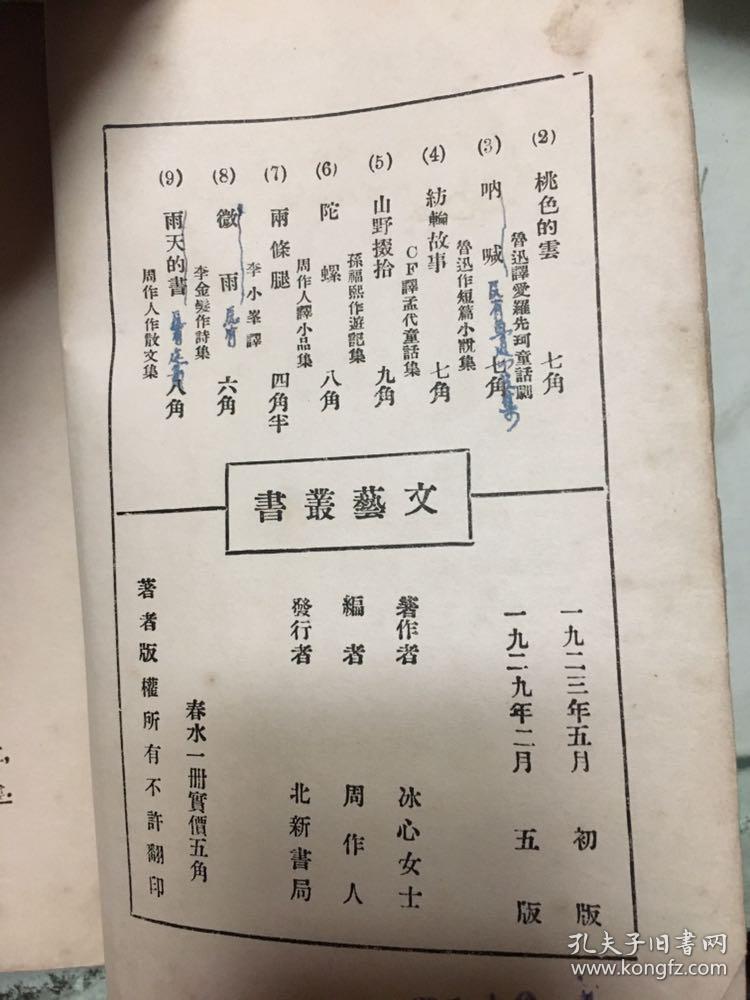 (2) 桃色的雲
魯迅譯愛羅先珂童話劇 七角
(3) 吶喊
魯迅作短篇小說集 七角
(4) 紡輪故事
CF譯孟代童話集 七角
(5) 山野掇拾
孫福熙作遊記集 九角
(6) 陀螺
周作人譯小品集 八角
(7) 兩條腿
李小峯譯 四角半
(8) 微雨
李金髮作詩集 六角
(9) 雨天的書
周作人作散文集 八角
書叢藝文
一九二三年五月 初版
一九二九年二月 五版
著作者 冰心女士
編者 周作人
發行者 北新書局
春水一冊實價五角
著者版權所有不許翻印
孔夫子旧書网
www.kongfz.com